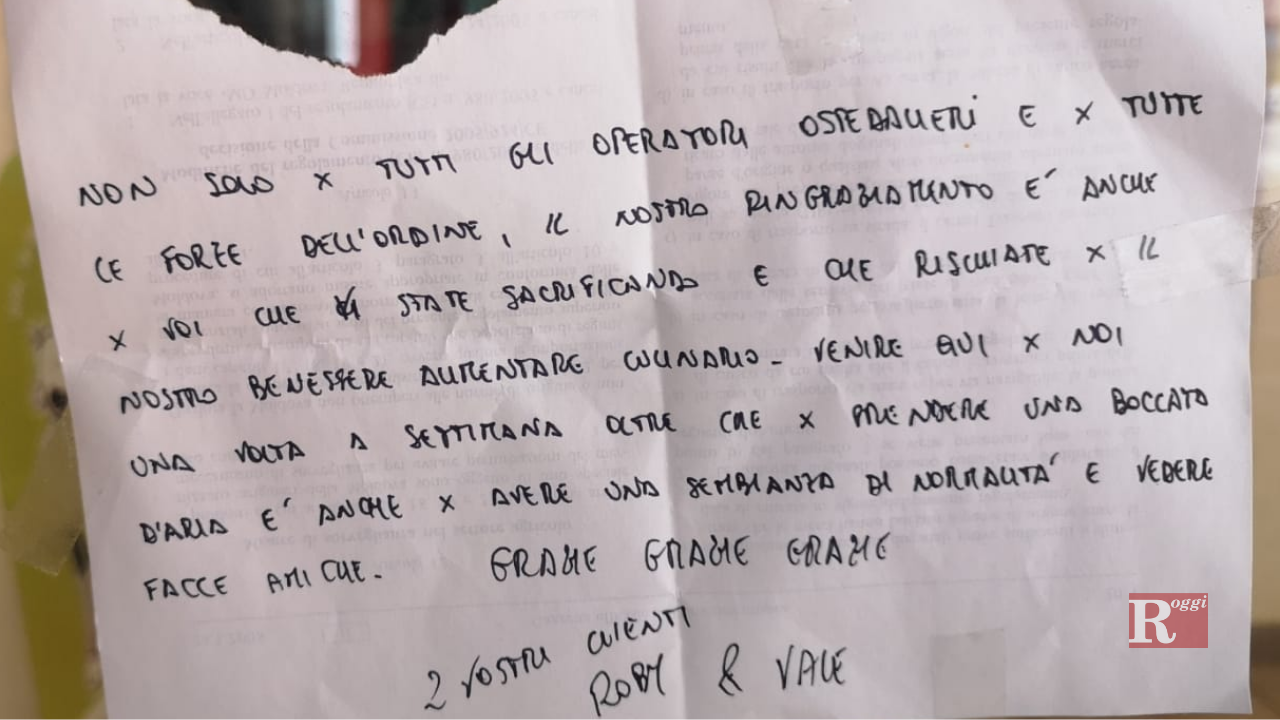 NON SOLO X TUTTI GLI OPERATORI OSPEDALIERI E X TUTTE
LE FORZE DELL'ORDINE, IL NOSTRO RINGRAZIAMENTO E' ANCHE
X VOI CHE STATE SACRIFICANDO E CHE RISCHIATE X IL
NOSTRO BENESSERE ALIMENTARE CULINARIO - VENIRE QUI X NOI
UNA VOLTA A SETTIMANA OLTRE CHE X PRENDERE UNA BOCCATA
D'ARIA E' ANCHE X AVERE UNA SEMBIANZA DI NORMALITA' E VEDERE
FACCE AMICHE. GRAZIE GRAZIE GRAZIE
2 VOSTRI CLIENTI
ROBY & VALE
Roggi